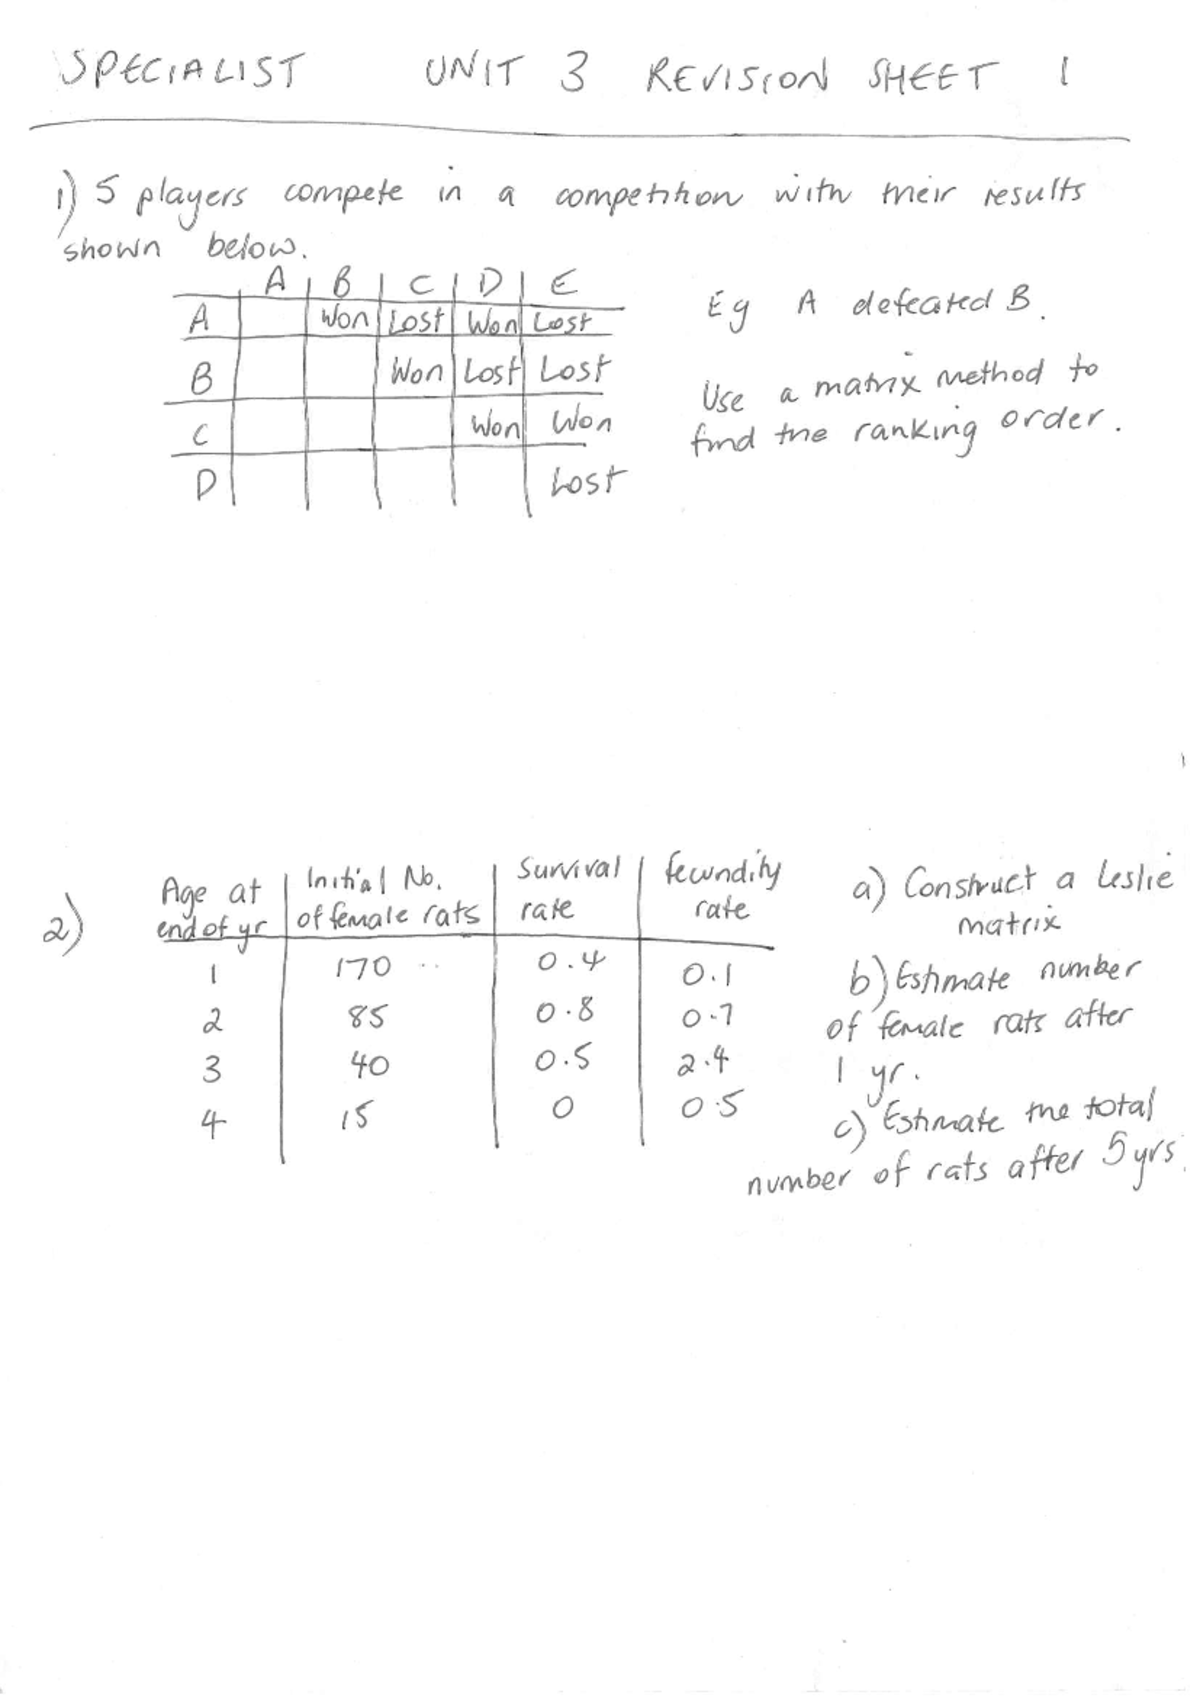 SPECIALIST UNIT 3 REVISION SHEET 1
1) 5 players compete in a competition with their results
shown below.
A B C D E
A Won Lost Won Lost
B Won Lost Lost
C Won Won
D Lost
Eg A defeated B.
Use a matrix method to
find the ranking order.
2)
Age at end of yr | Initial No. of female rats | Survival rate | fecundity rate
1 170 0.4 0.1
2 85 0.8 0.7
3 40 0.5 2.4
4 15 0 0.5
a) Construct a Leslie
matrix
b) Estimate number
of female rats after
1 yr.
c) Estimate the total
number of rats after 5 yrs.